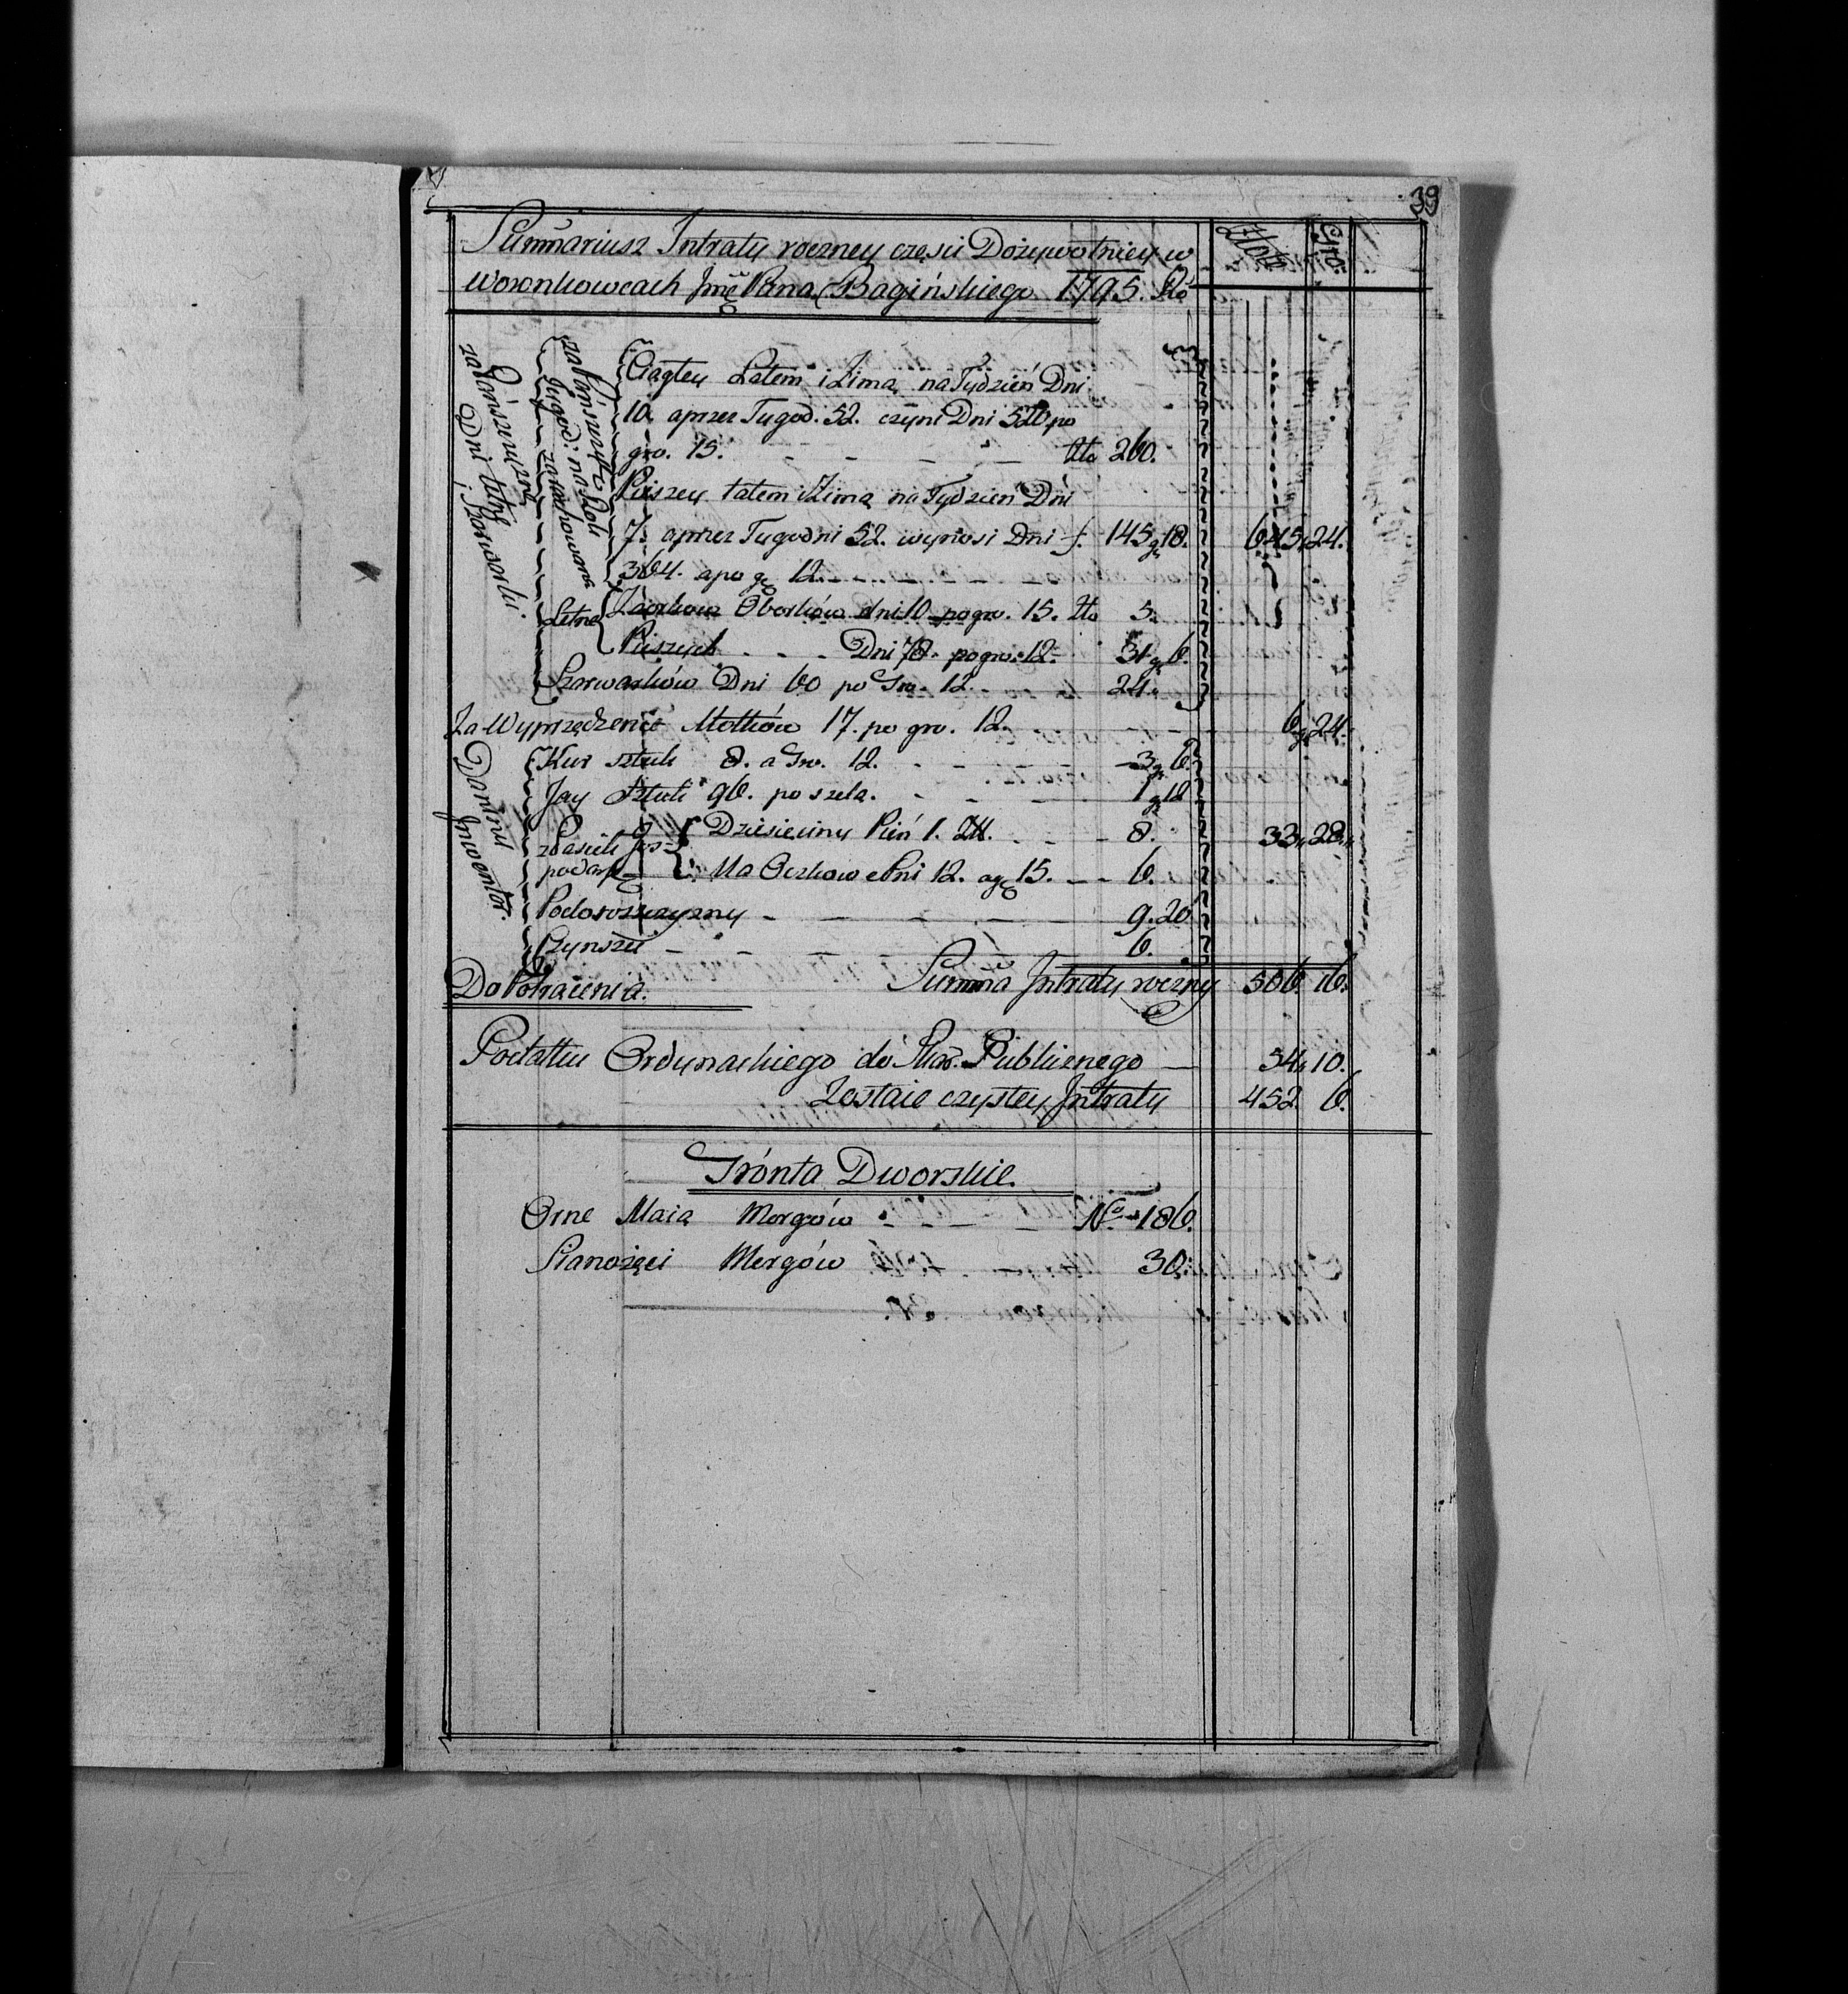 39
Summariusz Intraty roczney częsci Dozywotniey w
Woronkowcach Jmć Pana Bagińskiego 1795. Rto
Złote
Gro.
za Pańszczyznę
Dni letne
i Szarwarki
za Pańszczyznę
Tygod: na Rok
zarachowana
Ciągłey Latem i Zimą na Tydzień Dni
10. a przez Tygod. 52. czyni Dni 520. po
gro. 15. Zło 260.
Pieszey latem i Zimą na Tydzień Dni
7. a przez Tygodni 52. wynosi Dni f. 145 g 18. 645, 24.
364. a po g 12.
Letne
Zaorkow Oborków dni 10 po gro. 15. Zło 5.
Pieszych Dni 78. po gro. 12. 31 g 6.
Szarwarków Dni 60 po Gro. 12. 24.
Za Wyprzędzenie Motków 17. po gro. 12. 6 g 24.
Daniny
Inwentar.
Kur sztuk 8. a Gro. 12. 3 g 6.
Jay Sztuk 96. po szelą. 1 g 18
Dziesieciny Pień 1. Zł. 8. 33, 28,
Ma Oczkowe Pni 12. a g 15. 6.
Podoroszczyzny 9. 20
Czynszu 6.
Do Potrącenia. Summa Intraty roczny 506. 16.
Podatku Ordynackiego do Skar. Publicznego 54, 10.
Zostaie czystey Intraty 452. 6.
Grónta Dworskie.
Orne Maią Morgów No 186.
Sianożęci Morgów 30.